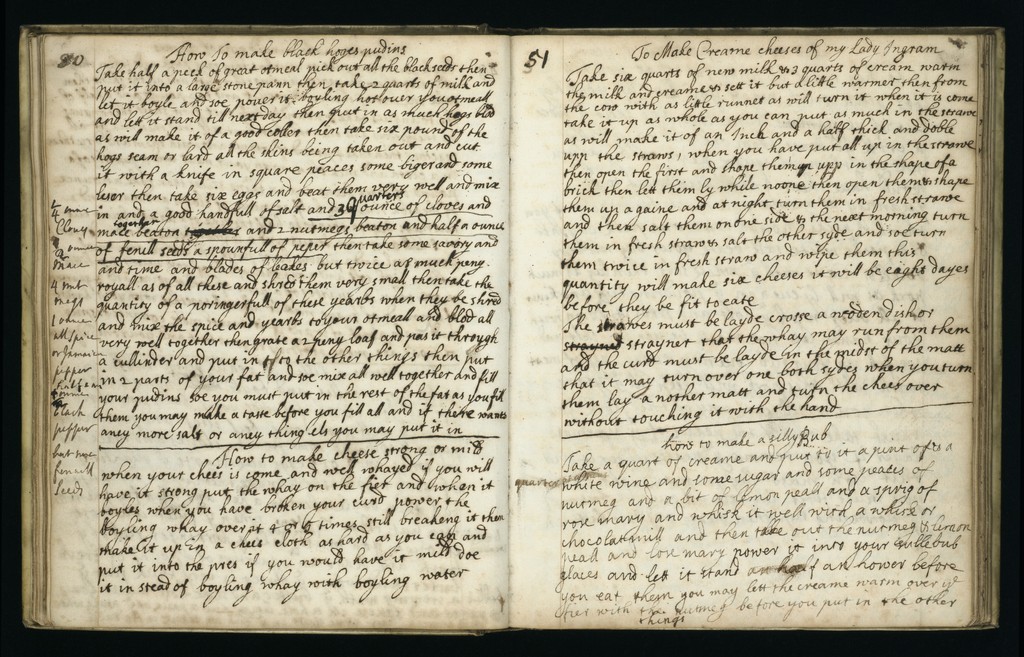 80
How To make black hoges pudins
Take half a peck of great otmeal pick out all the black seeds then
put it into a large stone pann then take 2 quarts of milk and
let it boyle and soe power it boyling hot over you otmeall
and let it stand till next day then put in as much hogs blod
as will make it of a good coller then take six pound of the
hogs seam or lard all the skins being taken out and cut
it with a knife in square peaces some biger and some
leser then take six eggs and beat them very well and mix
in and a good handfull of salt and 3 quarters ounce of cloves and
mace beaton together and 2 nutmegs beaton and half n ounce
of fenill seeds a spounfull of peper then take some savory and
and time and blades of leakes but twice as much peny
royall as of all these and shred them very small then take the
quantity of a poringerfull of these yearbs when they be shred
and mix the spice and yearbs to your otmeall and blod all
very well together then grate a 2 peny loaf and pas it through
a cullinder and put in it to the other things then put
in 2 parts of your fat and soe mix all well together and fill
your pudins soe you must put in the rest of the fat as you fill
them you may make a taste before you fill all and if there wants
aney more salt or aney thing els you may put it in
How to make cheese strong or mild
when your chees is come and well whayed if you will
have it strong put the whay on the fier and when it
boyles when you have broken your curd power the
boyling whay over at 4 or 5 times still breakeng it then
shake it up in a chees cloth as hard as you can and
put it into the pres if you would have it mild doe
it in stead of boyling whay with boyling water
mace
4 nut
megs
1 ounce
all spice
or Jamaica
pepper
black
pepper
fenill
seeds
51
To Make Creame cheeses of my Lady Ingram
Take six quarts of new milk & 3 quarts of cream warm
the milk and creame & sett it but a little warmer then from
the cow with as little runnet as will turn it when it is come
take it up as whole as you can put as much in the strawe
as will make it of an Inch and a half thick and doble
upp the straws, when you have put all up in the strawe
then open the first and shape them upp in the shape of a
brick then lett them ly while noone then open them & shape
them up againe and at night turn them in fresh strawe
and then salt them on one side & the next morning turn
them in fresh straw & salt the other syde and soe turn
them twice in fresh straw and wipe them this
quantity will make six cheeses it will be eaght dayes
before they be fit to eate
The strawes must be layde crosse a wooden dish or
strayner that the whay may run from them
and the curd must be layde in the midst of the matt
that it may turn over one both sydes when you turn
them lay a nother matt and turn the chees over
without touching it with the hand
how to make a sillyBub
Take a quart of creame and put to it a pint of a
quarter of
white wine and some sugar and some peaces of
nutmeg and a bit of Limon peall and a sprig of
rose mary and whisk it well with a whisk or
chocolatt mill and then take out the nutmeg & Limon
peall and rose mary power it into your sillebub
glaces and let it stand an half an hower before
you eat them you may lett the creame warm over ye
fier with the nutmeg before you put in the other
things